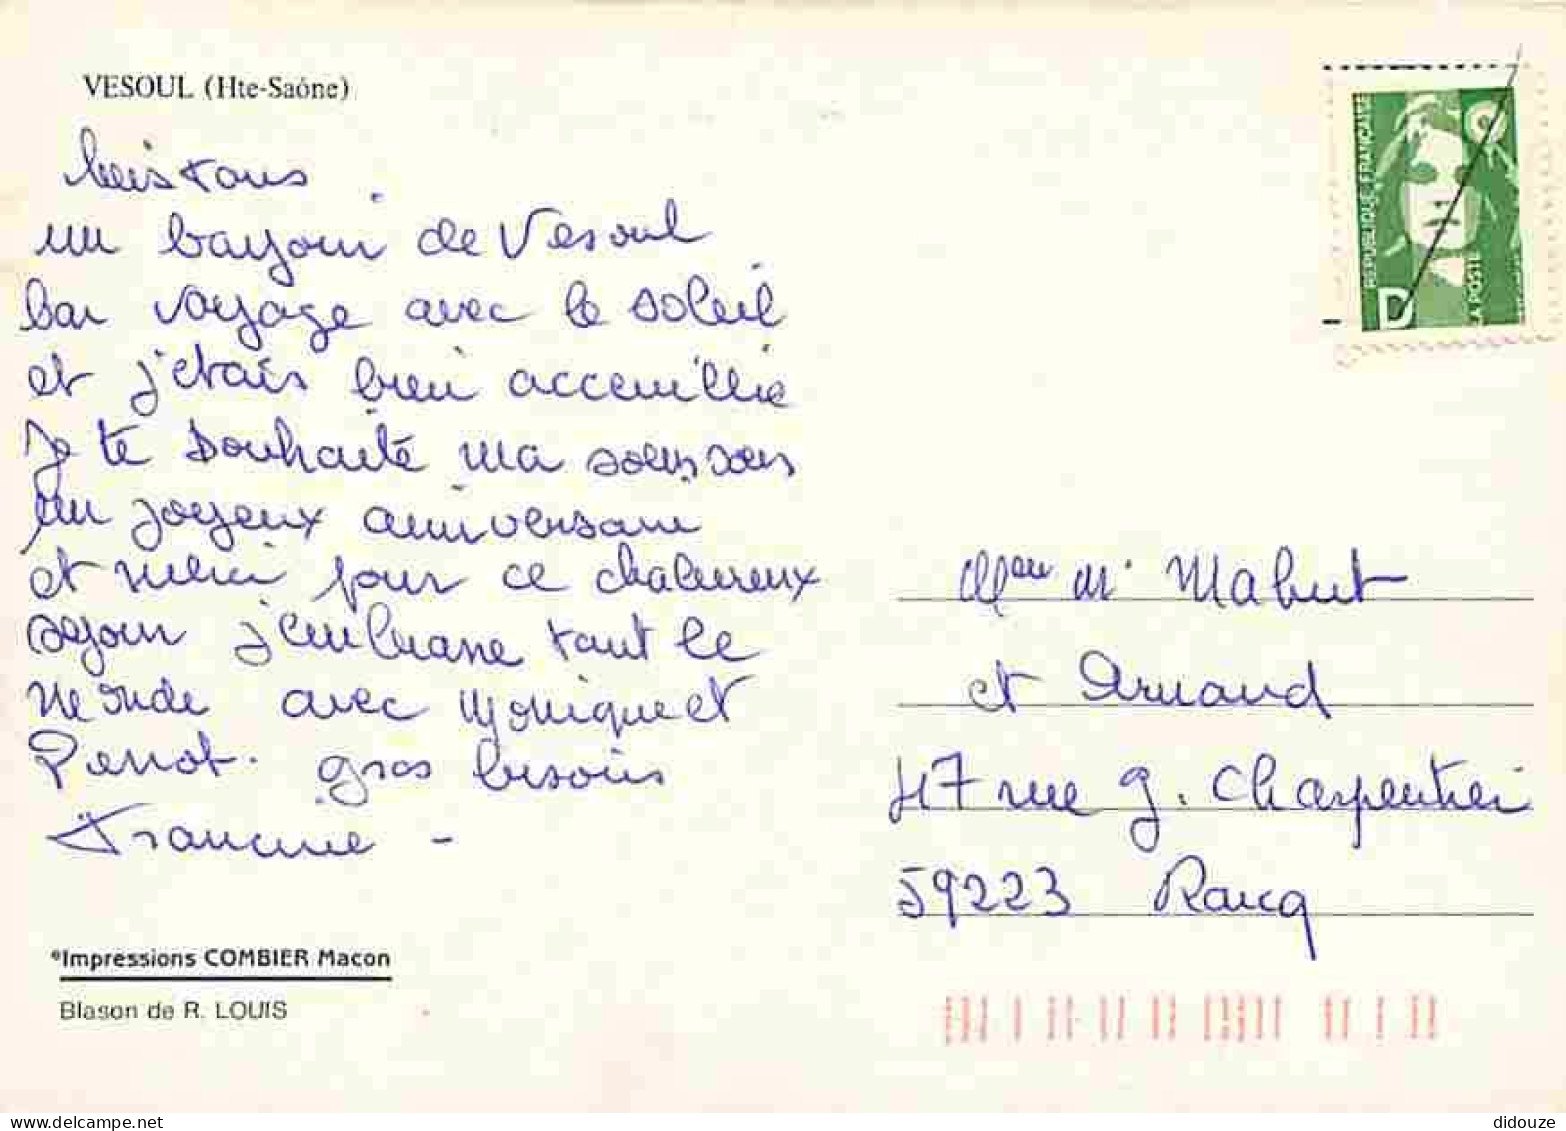 VESOUL (Hte-Saône)
un bonjour de Vesoul
bon voyage avec le soleil
et j'etais bien acceuillie
Je te souhaite ma
un joyeux anniversaire
et merci pour ce chaleureux
sejour j'embrasse tout le
monde avec Monique et
Perrot. gros besoins
Francine -
®Impressions COMBIER Macon
Blason de R. LOUIS
REPUBLIQUE FRANÇAISE
LA POSTE
D
Mme Mr Mabut
et Arnaud
47 rue g. Charpentier
59223 Roncq
didouze